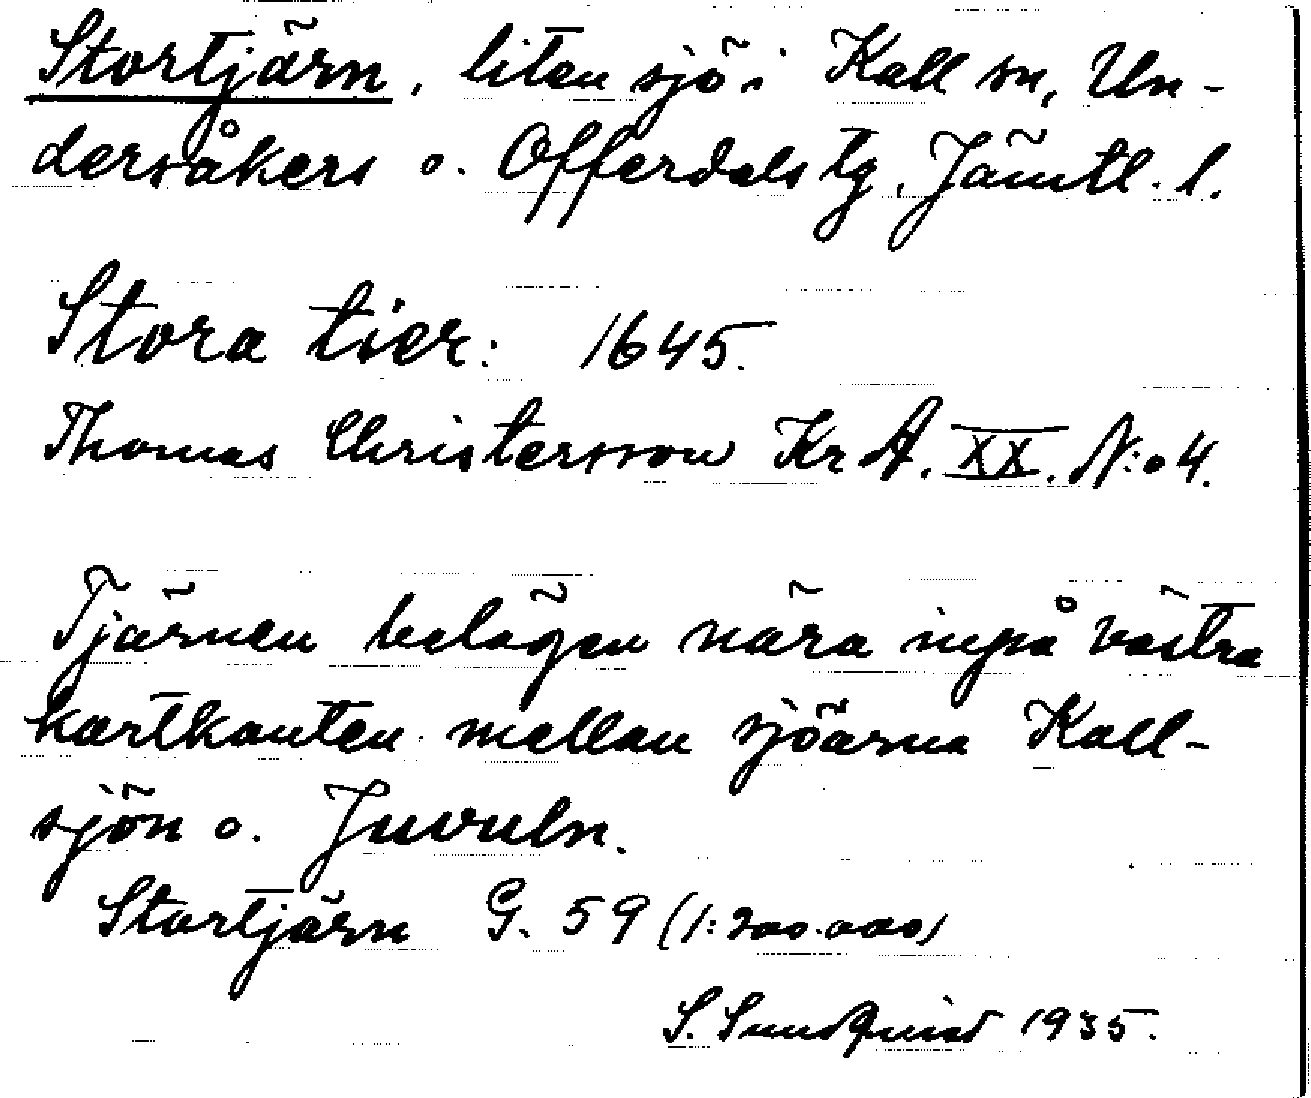 Stortjärn, liten sjö i Kall sn, Un-
dersåkers o. Offerdals tg. Jämtl. l.
Stora tier: 1645.
Thomas Christersson Kr A. XX. N:o 4.
Tjärnen belägen nära inpå västra
kartkanten mellan sjöarna Kall-
sjön o. Juvuln.
Stortjärn G. 59 (1:200.000)
S. Sundquist 1935.